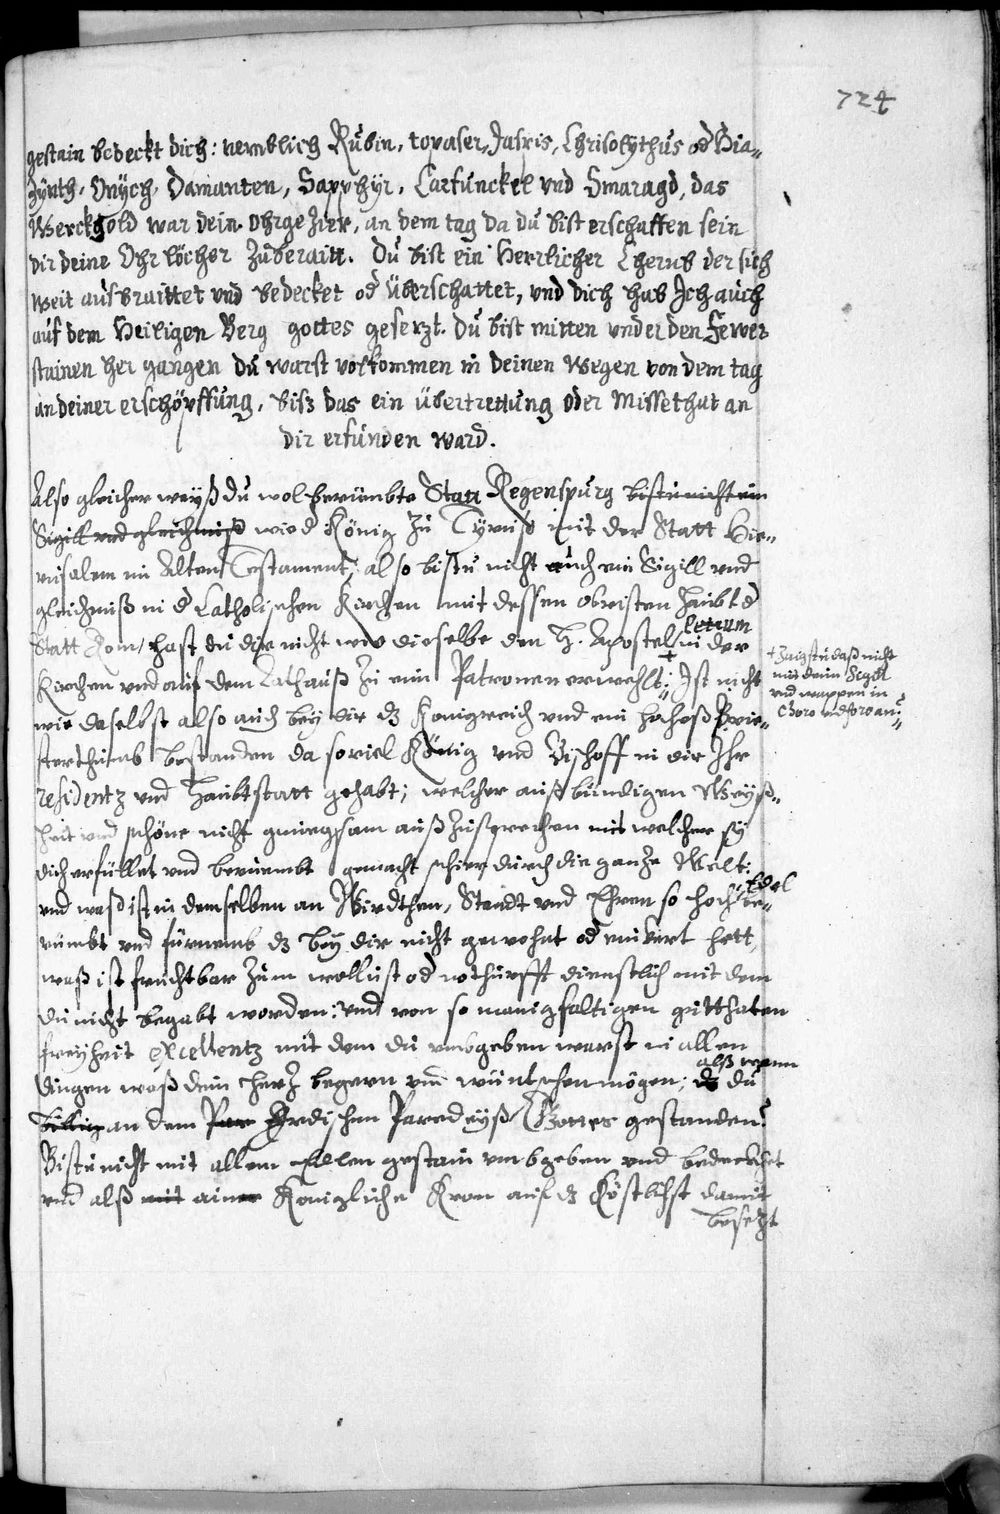 724
gestain bedeckt dich: nemblich Rubin, topaser, Jaspis, Chrisolythus od Hia-
zynth, Onych, Damanten, Sapphyr, Carfunckel vnd Smaragd, das
Werckgold war dein ohrgezier, an dem tag da du bist erschaffen sein
dir deine Ohrlöcher Zuberaitt. Du bist ein Herrlicher Cherub der sich
weit ausbraittet vnd bedecket od überschattet, vnd dich hab Ich auch
auf dem Heiligen Berg gottes gesetzt. Du bist mitten vnder den Fewer
stainen her gangen du warst volkommen in deinen Wegen von dem tag
an deiner erschöpffung, biß das ein übertrettung oder Missethat an
dir erfunden ward.
Also gleicher weyß du wolberümbte Statt Regenspurg bistu nicht ein
Sigill vnd gleichniß wie d König zu Tyrus mit der Statt Hie-
rusalem im Alten Testament, also bistu nicht auch ein Sigill vnd
gleichniß in d Catholischen Kirchen mit dessen obristen Haubt d
Statt Rom, hast du dir nicht wie dieselbe den H. Apostel Petrum in der
Kirchen vnd auf dem Rathauß zu eim Patronen erwehlt: Ist nicht
+ Zaigstu daß nicht
mit deim Sigill
vnd wappen in
wie daselbst also auch bey dir dz Konigreich vnd ein hohes Prie-
sterthumb bestanden da soviel König vnd Bischoff in dir Ihr
residentz vnd Haubtstatt gehabt; welcher außbündigen Weyß-
heit vnd schöne nicht gnuegsam außzusprechen mit welcher sy
dich erfüllet vnd beruembt gemacht schier durch die ganze Welt:
vnd waß ist in demselben an Wirdthen, Standt vnd Ehren so hoch Edel be-
rümbt vnd fürnemb dz bey dir nicht gewohnt od einkert hett,
waß ist fruchtbar zum wollust od notthurfft dienstlich mit dem
du nicht begabt worden: vnd von so manigfaltigen gutthaten
freyheit excellentz mit dem du vmbgeben warst in allen
dingen waß dein herz begern vnd wüntschen mögen; alß wann dz du
billig an dem Par Irdischen Paradeyß Gottes gestanden?
Bistu nicht mit allem Edlen gestain vmbgeben vnd bedeckhet
vnd alß mit ainer Konigliche Kron auf dz Köstlichst damit
besetzt